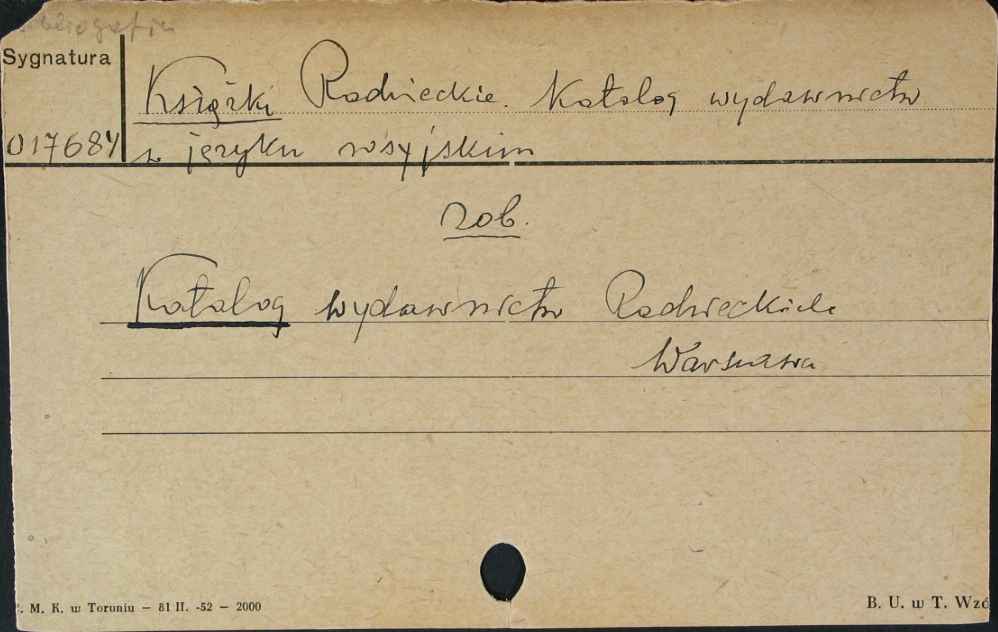 bibliografia
Sygnatura
Książki Radzieckie. Katalog wydawnictw
017684
w języku rosyjskim
zob.
Katalog wydawnictw Radzieckich
Warszawa
. M. K. w Toruniu — 81 II. -52 — 2000
B. U. w T. Wzó